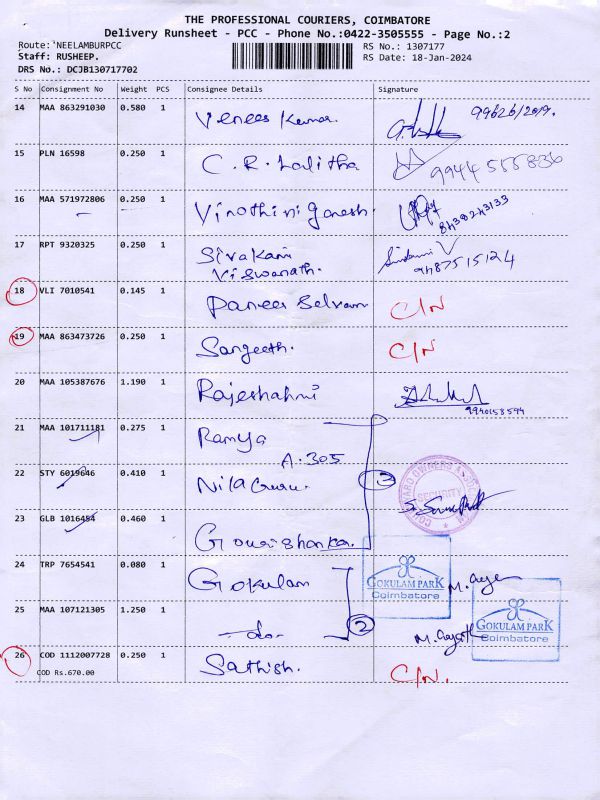 THE PROFESSIONAL COURIERS, COIMBATORE
Delivery Runsheet - PCC - Phone No.:0422-3505555 - Page No.:2
Route:'NEELAMBURPCC
RS No.: 1307177
Staff: RUSHEEP.
RS Date: 18-Jan-2024
DRS No.: DCJB130717702
S No Consignment No Weight PCS Consignee Details Signature
14 MAA 863291030 0.580 1 Venees Kumar. 99626/2019.
15 PLN 16598 0.250 1 C.R. Lalitha 9944555836
16 MAA 571972806 0.250 1 Vinothini ganesh. 8438243133
17 RPT 9320325 0.250 1 Sivakami
Viswanath. 9487515124
18 VLI 7010541 0.145 1 Paneer Selvam C/N
19 MAA 863473726 0.250 1 Sangeeth. C/N
20 MAA 105387676 1.190 1 Rajeshahni 9940158594
21 MAA 101711181 0.275 1 Ramya
A-305
22 STY 6019646 0.410 1 Nilaguru. 3
SECURITY
23 GLB 1016454 0.460 1 Gowrishankar.
24 TRP 7654541 0.080 1 Gokulam
GOKULAM PARK
Coimbatore
25 MAA 107121305 1.250 1 -do- 2
GOKULAM PARK
Coimbatore
26 COD 1112007728 0.250 1 Sathish. C/N.
COD Rs.670.00